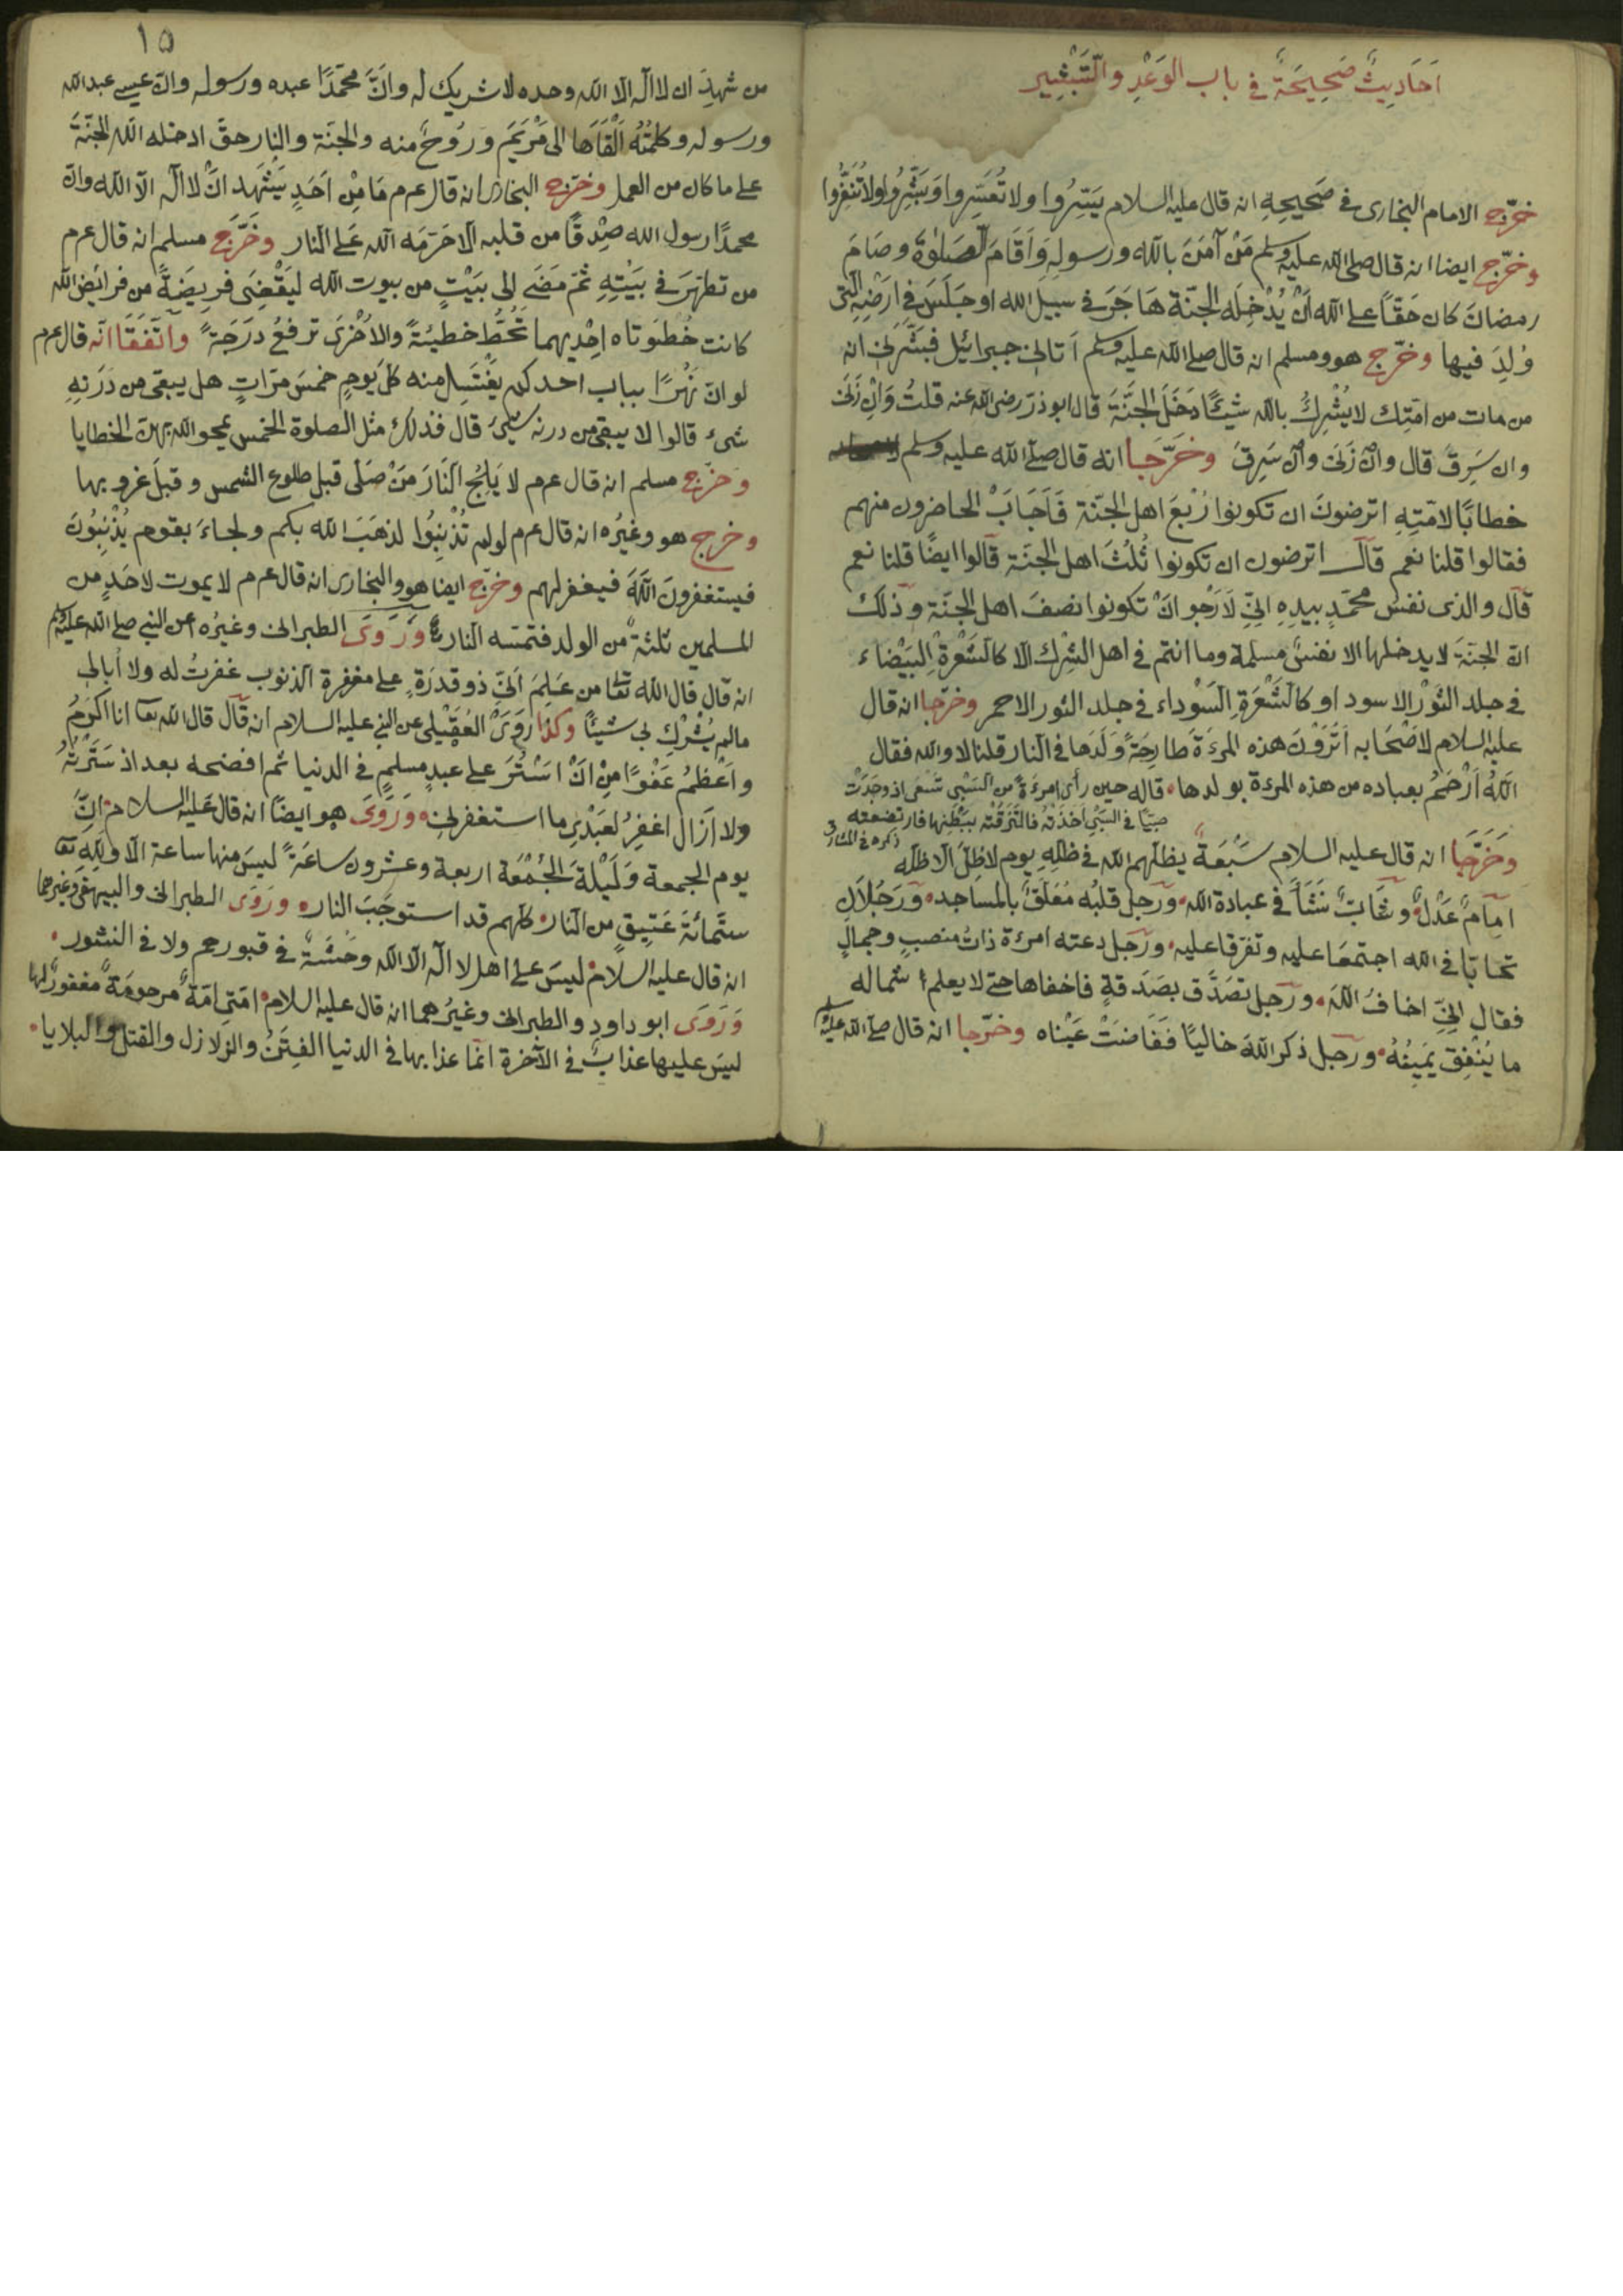 اَحَادِيثٌ صَحِيحَةٌ في باب الوَعْدِ والتَّبْشِير
خرّج الامام البخارى في صَحِيحِهِ انه قال عليه السلام يَسِّرُوا ولا تُعَسِّروا وَبَشِّرُوا ولا تُنَفِّرُوا
وخرّج ايضا انه قال صلى الله عليه وسلم مَنْ آمَنَ بالله ورسولِهِ وَاَقَامَ الصَلوٰةَ وصَامَ
رمضانَ كان حَقّاً على الله اَنْ يُدْخِلَه الجنّة هَاجَرَ في سبيل الله او جَلَسَ في اَرْضِهِ الّتى
وُلِدَ فيها وخرّج هو ومسلم انه قال صلى الله عليه وسلم اَتانى جبرائيل فَبَشَّرَنى انه
من مات من امّتك لا يُشْرِكُ بالله شَيئًا دَخَلَ الجنَّةَ قال ابو ذرّ رضى الله عنه قلتُ وَاِنْ زَنَى
وان سَرِقَ قال وانْ زَنَى وانْ سَرِقَ وخَرَّجَا انه قال صلى الله عليه وسلم
خطابًا لامّتِهِ اترضونَ ان تكونوا رُبْعَ اهل الجنّة فَاَجَابَ الحاضرون منهم
فقالوا قلنا نعم قال اترضون ان تكونوا ثُلُثَ اهل الجنَة قالوا ايضًا قلنا نعم
قال والذى نفسُ محمّدٍ بيدِهِ انِّى لَاَرْجُو انْ تكونوا نصفَ اهل الجنّة وذلك
انّ الجنّةَ لا يدخلها الا نفسٌ مسلمة وما انتم في اهل الشِرْك الّا كالشَعْرة البَيْضاء
في جلد الثَوْر الاسود او كالشَعْرَةِ السَوْداء في جلد الثور الاحمر وخرّجا انه قال
عليه السلام لاَصْحَابه اَتُرَوْنَ هذه المرءَةَ طَارِحَةً وَلَدَها في النار قلنا لا والله فقال
اللهُ اَرْحَمُ بعباده من هذه المرءة بولدها قاله حين رأى امرءَةً من السَبْى تَسْعَى اذ وجَدَتْ
صبيّا في السَبْى اَخَذَتْهُ فالتَزَقَتْه بِبَطْنِها فارتضعته
ذكره في المشارق
وخَرَّجَا انه قال عليه السلام سَبْعَةٌ يظلّهم الله في ظلّه يوم لا ظِلَّ الّا ظلّه
امامٌ عَدْلٌ وشابٌّ نَشَأَ في عبادة الله ورَجلٌ قلبُه مُعَلَّقٌ بالمساجد ورَجُلَانِ
تحابّا في الله اجتمَعَا عليه وتفرّقا عليه ورَجل دعته امرءة ذاتُ منصبٍ وجمالٍ
فقال انِّى اخافُ اللهَ ورَجل تصَدَّق بصَدَقةٍ فاخفاها حتى لا يعلم شماله
ما يُنْفِق يَمِينُهُ ورَجل ذكر اللهَ خاليًا ففَاضَتْ عَيْناه وخرّجا انه قال صلى الله عليه وسلم
١٥
من شَهِدَ ان لا اله الّا الله وحده لا شريك له وانَّ محمّدًا عبده ورسوله وانّ عيسى عبد الله
ورسوله وكلمتُهُ اَلْقَاها الى مَرْيَمَ ورُوحٌ منه والجنّة والنار حقّ ادخله الله الجنّةَ
على ما كان من العمل وخرّج البخارى انه قال عرم مَا مِنْ اَحَدٍ يَشْهَد انْ لا اله الّا الله وانّ
محمدًا رسول الله صِدْقًا من قلبه الّا حَرّمَه الله عَلى النار وخَرَّج مسلم انه قال عرم
من تطهّرَ في بَيْتِهِ ثم مَضَى الى بَيْتٍ من بيوت الله لِيَقْضِىَ فَرِيضَةً من فرائض الله
كانت خُطْوَتاه احْديهما تحُطُّ خطيئةً والاُخْرَى ترفعُ دَرَجَةً واتّفَقَا انّه قال عرم
لو انّ نَهْرًا بباب احدكم يغْتَسِل منه كلّ يومٍ خمسَ مرّاتٍ هل يبقى من دَرَنِهِ
شىء قالوا لا يبقى من درنه شىء قال فذلك مثل الصلوة الخمس يمحو الله بهنّ الخطايا
وخرّج مسلم انه قال عرم لا يَلِجُ النَارَ مَنْ صَلَّى قبل طلوع الشمس وقبلَ غروبها
وخرّج هو وغيرُه انه قال عرم لو لم تُذْنِبُوا لذهَبَ الله بكم ولجاءَ بقوم يُذْنِبُونَ
فيستغفرونَ اللهَ فيغفر لهم وخرّج ايضا هو والبخارى انه قال عرم لا يموت لاحَدٍ من
المسلمين ثلثةٌ من الولد فتمسّه النار ورَوَى الطبرانى وغيرُه عن النبى صلى الله عليه وسلم
انه قال قال الله تعا من عَلِمَ انّى ذو قدرَةٍ على مغفرة الذنوب غفرتُ له ولا اُبالى
مالم يُشْرِك بى شيئًا وكذا رَوَى العُقَيْلى عن النبى عليه السلام انه قال قال الله تعا انا اكرَمُ
واَعْظَمُ عَفْوًا مِنْ اَنْ اَسْتُرَ على عبدٍ مسلمٍ في الدنيا ثم افضحه بعد اذ سَتَرْتُهُ
ولا ازَال اغفِرُ لعَبْدى ما استغفرنى ورَوَى هو ايضًا انه قال عَليه السلام انَّ
يوم الجمعة وَلَيْلةَ الجُمْعَة اربعة وعشرون ساعَةً ليسَ منها ساعة الّا ولله تعا
ستّمائةَ عَتِيقٍ من النار كلّهم قد استوجَبَ النار ورَوَى الطبرانى والبيهقى وغيرهما
انه قال عليه السلام ليسَ على اهل لا اله الّا الله وَحْشَةٌ في قبورهم ولا في النشور
ورَوَى ابو داود والطبرانى وغيرُهما انه قال عليه السلام امّتى امّةٌ مرحومَةٌ مغفورٌ لها
ليسَ عليها عذابٌ في الآخرة انّما عذابها في الدنيا الفِتَنُ والزلازل والقتل والبلايا